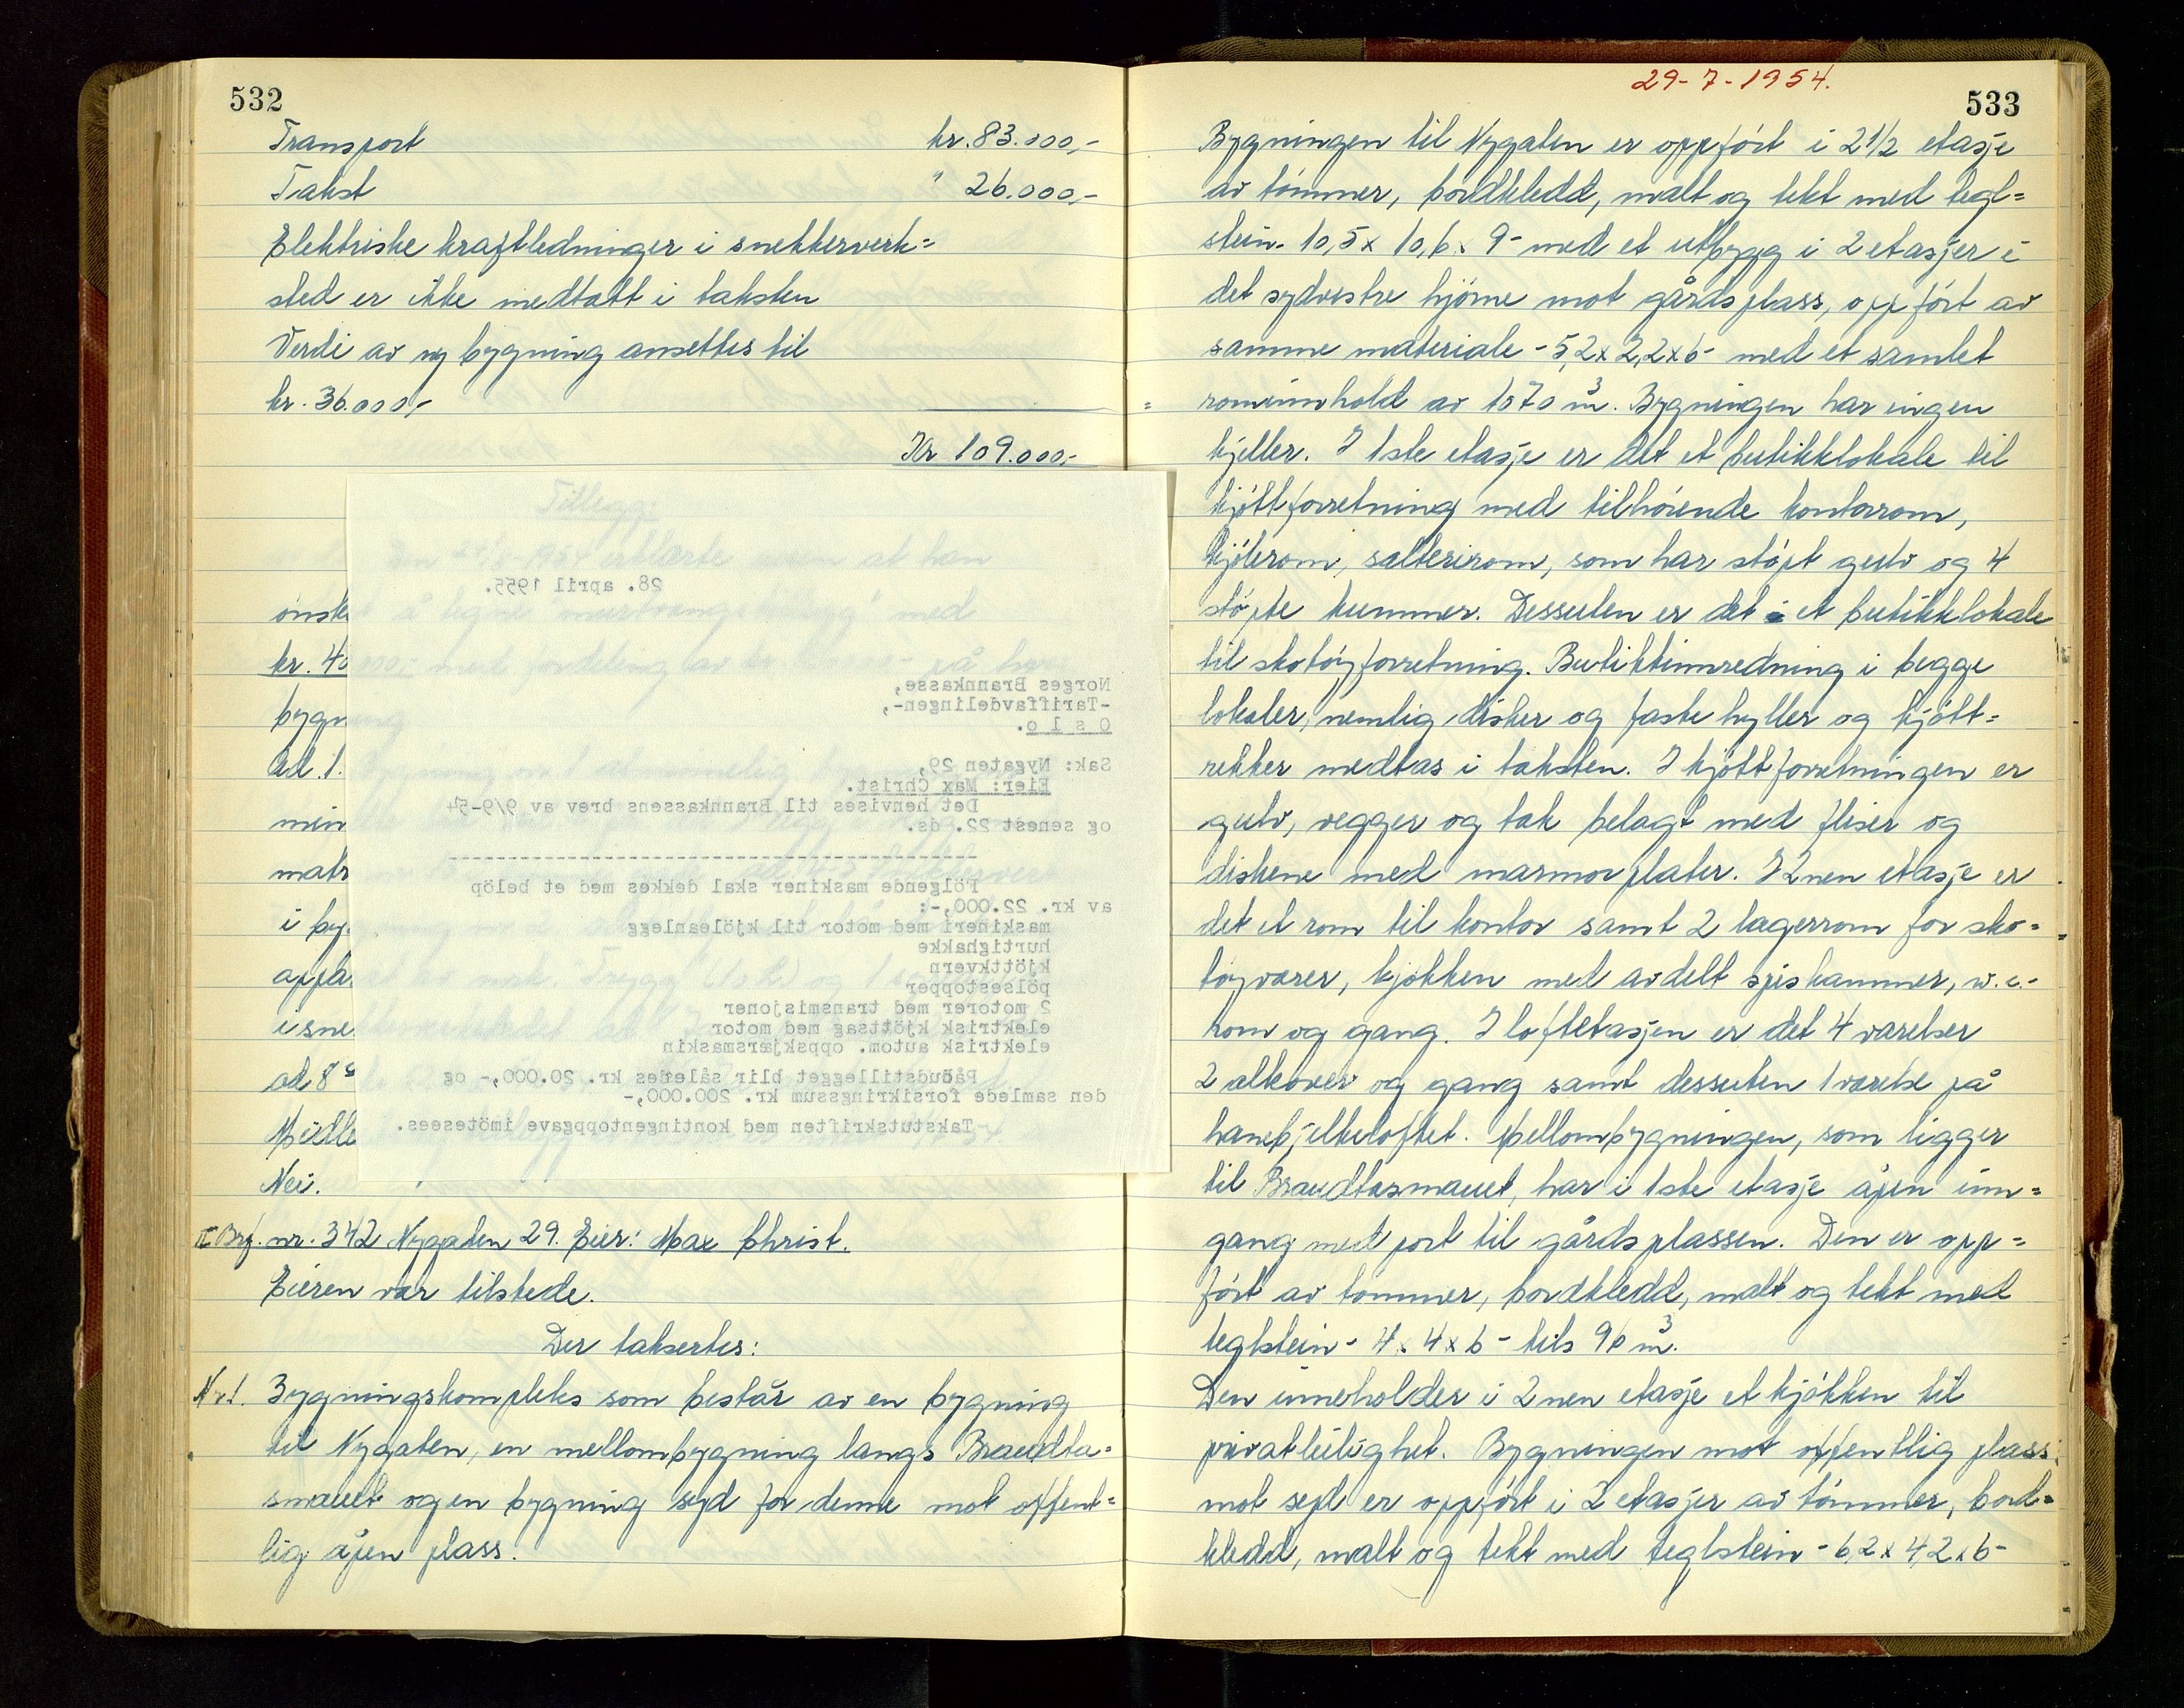 532
Transport kr. 83.000,-
Takst " 26.000,-
Elektriske kraftledninger i snekkerverk=
sted er ikke medtatt i taksten
Verdi av ny bygning ansettes til
kr. 36.000,-
Kr 109.000,-
Tillegg:
ønske
kr. 40
bygn
Ad. 1.
min
matr
i by
appa
i sne
ad 8
Nei.
28. april 1955.
Norges Brannkasse,
-Tariffavdelingen-,
O s l o.
Sak: Nygaten 29,
Eier: Max Christ.
Det henvises til Brannkassens brev av 9/9-54
og senest 22. ds.
----------------------------------------
Følgende maskiner skal dekkes med et beløp
av kr. 22.000,-:
maskineri med motor til kjöleanlegg
hurtighakke
kjöttkvern
pölsestopper
2 motorer med transmisjoner
elektrisk kjöttsag med motor
elektrisk autom. oppskjærsmaskin
Påbudstillegget blir således kr. 20.000,- og
den samlede forsikringssum kr. 200.000,-
Takstutskriften med kontingentoppgave imötesees.
II Brf. nr. 342 Nygaten 29. Eier: Max Christ.
Eieren var tilstede.
Der takseres:
Nr 1. Bygningskompleks som består av en bygning
til Nygaten, en mellombygning langs Braudta=
smauet og en bygning syd for denne mot offent=
lig åpen plass.
29-7-1954.
533
Bygningen til Nygaten er oppført i 2 1/2 etasje
av tømmer, bordkledd, malt og tekt med tegl=
stein - 10,5 x 10,6 x 9 - med et utbygg i 2 etasjer i
det sydvestre hjørne mot gårdsplass, oppført av
samme materiale - 5,2 x 2,2 x 6 - med et samlet
rominnhold av 1070 m³. Bygningen har ingen
kjeller. I 1ste etasje er det et butikklokale til
kjøttforretning med tilhørende kontorrom,
kjølerom, salterirom, som har støpt gulv og 4
støpte kummer. Dessuten er det et butikklokale
til skotøyforretning. Butikkinnredning i begge
lokaler, nemlig disker og faste hyller og kjøtt=
rekker medtas i taksten. I kjøttforretningen er
gulv, vegger og tak belagt med fliser og
diskene med marmorplater. I 2nen etasje er
det et rom til kontor samt 2 lagerrom for sko=
tøyvarer, kjøkken med avdelt spiskammer, w.c.-
rom og gang. I loftetasjen er det 4 værelser
2 alkover og gang samt dessuten 1 værelse på
hanebjelkeloftet. Mellombygningen, som ligger
til Braudtasmauet, har i 1ste etasje åpen inn=
gang med port til gårdsplassen. Den er opp=
ført av tømmer, bordkledd, malt og tekt med
teglstein - 4 x 4 x 6 - tils 96 m³.
Den inneholder i 2nen etasje et kjøkken til
privatleilighet. Bygningen mot offentlig plass
mot syd er oppført i 2 etasjer av tømmer, bord=
kledd, malt og tekt med teglstein - 6,2 x 4,2 x 6 -